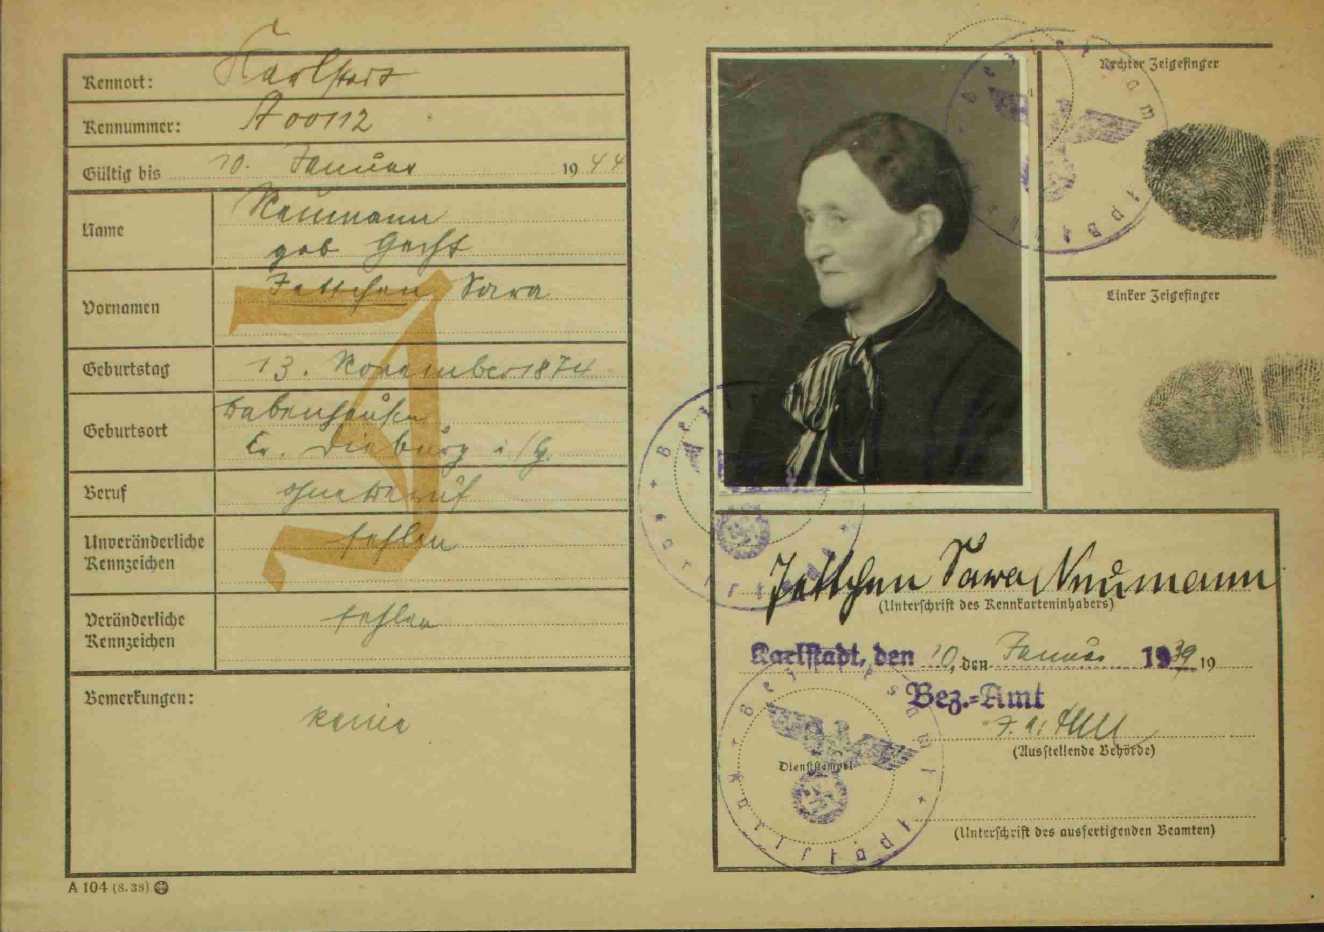 Kennort: Karlstadt
Kennummer: A 00112
Gültig bis 10. Januar 1944
Name Neumann
geb
Vornamen Jettchen Sara
Geburtstag 13. November 1874
Geburtsort Babenhausen
Dieburg i/H.
Beruf ohne Beruf
Unveränderliche Kennzeichen fehlen
Veränderliche Kennzeichen fehlen
Bemerkungen: keine
A 104 (8.38)
J
Rechter Zeigefinger
Linker Zeigefinger
Bezirksamt
Karlstadt
Bezirksamt
Karlstadt
Jettchen Sara Neumann
(Unterschrift des Kennkarteninhabers)
Karlstadt, den 10. den Januar 1939 19
Bez.-Amt
(Ausstellende Behörde)
Bezirksamt
Karlstadt
Dienststempel
(Unterschrift des ausfertigenden Beamten)